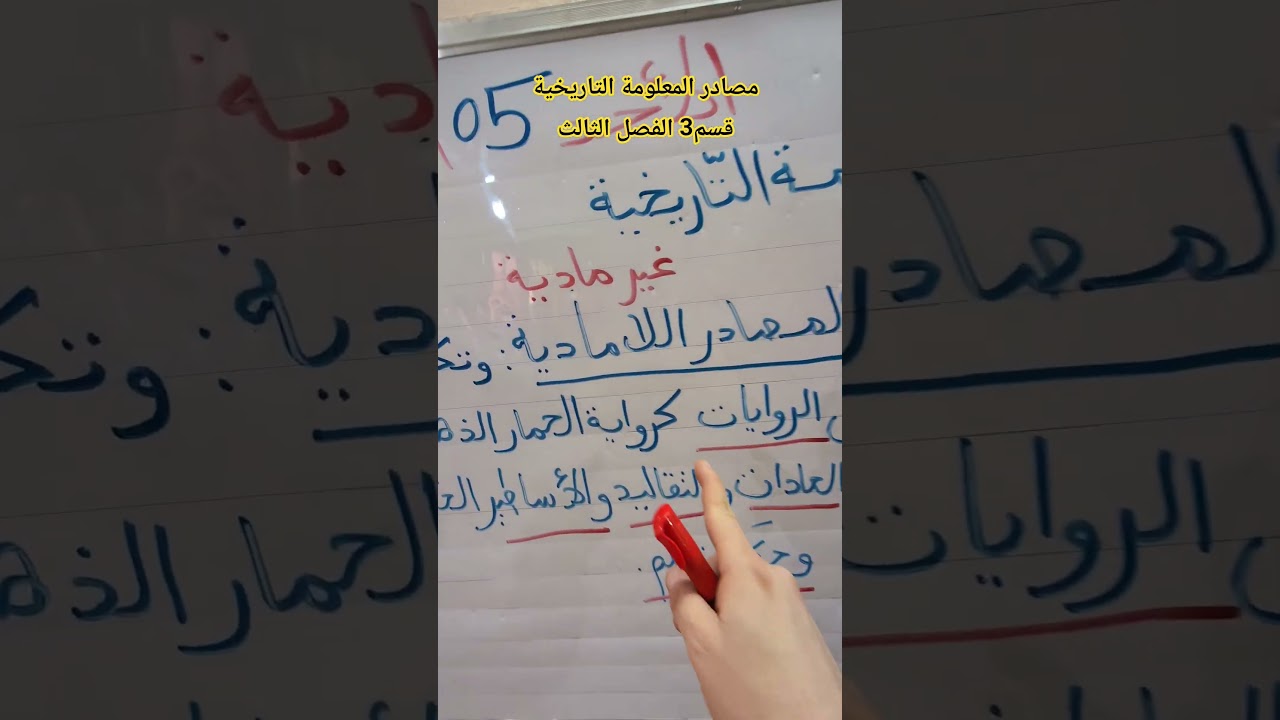 مصادر المعلومة التاريخية
قسم3 الفصل الثالث
05
التّاريخية
غير مادية
المصادر اللامادية: وتك
الروايات كرواية الحمار الذه
العادات والتقاليد والأساطير الع